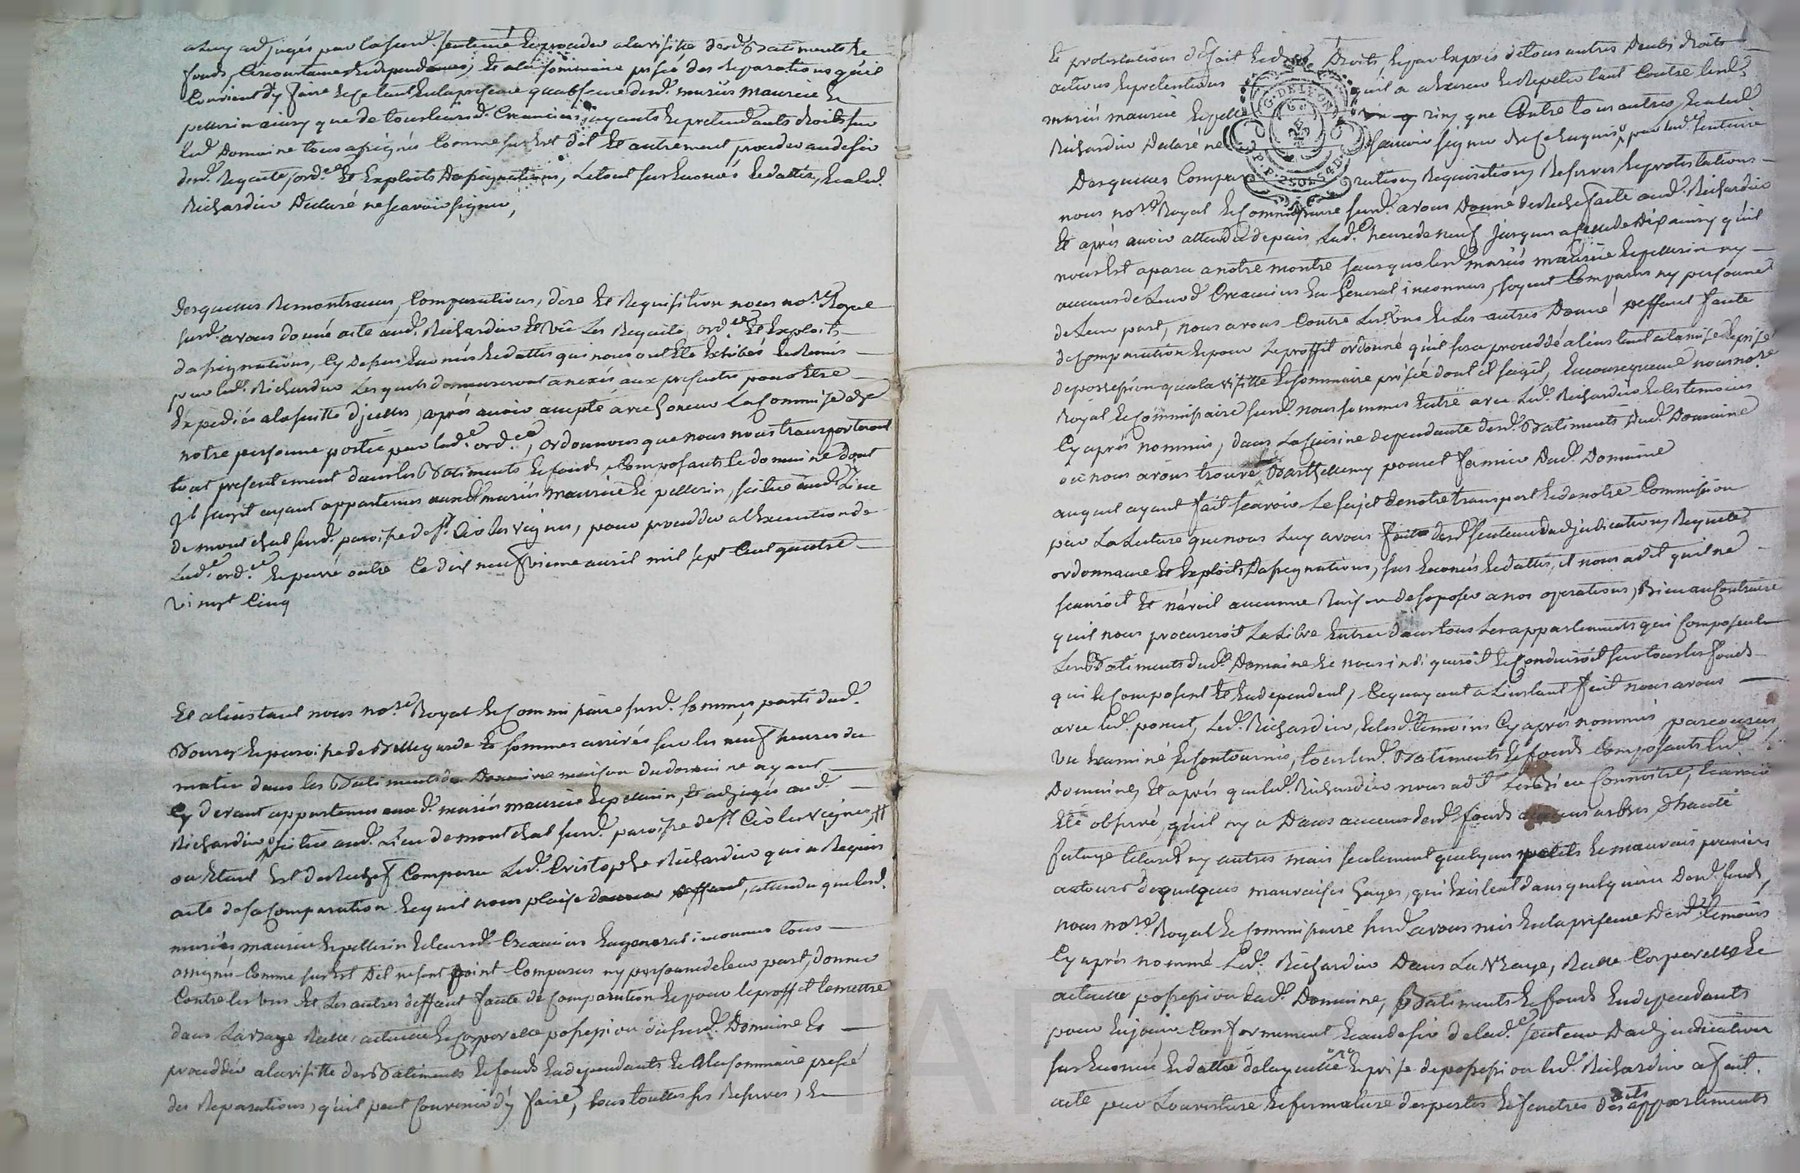 a luy adjugés par lad. sentence et proceder a la visitte desd. Batiments et
fonds, circonstances et dependances, et a la sommaire prisée des Reparations qu'il
Convient d'y faire et ce tant en la presence qu'absence desd. mariés maurice et
pellerin ainsy que de tous leursd. Creanciers, ayants et pretendants droits sur
led. Domaine tous assignés Comme sus est dit Et autrement proceder au desir
desd. Requete, ord.ce Et Exploits Dassignations, Le tout sus Enoncés et dattés, et a led.
Richardier Declaré ne scavoir signer,
Desquelles Remontrances, Comparutions, dire Et Requisition nous no.re Royal
susd. avons donné acte aud. Richardier et vû Les Requete, ord.ce Et Exploits
dassignations, Cy dessus Enoncés et dattés qui nous ont Eté Exhibés et Remis
par led. Richardier Lesquels demeureront anexés aux presentes pour Etre
Expediés a la suitte d'jcelles, après avoir accepté avec honeur La Commission de
notre personne portée par lad.e ord.ce, ordonnons que nous nous transporterons
tout presentement dans les Batiments et fonds Composants le domaine dont
il s'agit ayant appartenus auxd. mariés maurice et pellerin, scitué aud. Lieu
de montchal susd. paroisse de st Cir les vignes, pour proceder a l'Execution de
Lad.e ord.ce Et passé outre Ce dix neufvieme avril mil sept Cent quatre
vingt Cinq
Et a l'instant nous no.re Royal et Commissaire susd. sommes partis dud.
Bourg et paroisse de Bellegarde Et sommes arrivés sur les neuf heures du
matin dans les Batiments de maison du domaine ayant
Cy devant appartenus auxd. mariés maurice et pellerin, et adjugés aud.
Richardier scitué aud. Lieu de montchal susd. paroisse de st Cir les vignes
ou Etant Est derechef Comparu Led. Cristophe Richardier qui a Requis
acte de sa Comparution Et qu'il nous plaise donner deffaut, attendu que lesd.
mariés maurice et pellerin et leursd. Creanciers En general inconnus tous
assignés Comme sus est dit ne sont point Comparus ny personne de leur part, donner
Contre les uns Et Les autres deffaut faute de Comparution et pour le proffit le mettre
dans La vraye Réelle, actuelle et corporelle possession du susd. Domaine et
proceder a la visitte desd. Batiments et fonds En dependants et a la sommaire prisée
des Reparations, qu'il peut Convenir d'y faire, sous touttes ses Reserves, Et
Et protestations de fait et de Droits et par Exprès de tous autres Deubs droits
actions et pretentions qu'il a a Exercer et Repeter tant Contre lesd.
mariés maurice et pelle rin, que Contre tous autres, et a led.
Richardier Declaré ne scavoir signer de ce Enquis, par lad. sentence
Desquelles Compar utions, Requisitions, Reserves et protestations
nous no.re Royal et Commissaire susd. avons Donné derechef acte aud. Richardier
Et après avoir attendu depuis Lad.e heure de neuf jusqu'a celle de Dix ainsy qu'il
nous est aparu a notre montre sans que lesd. mariés maurice et pellerin ny
aucuns de leursd. Creanciers En General inconnus, soyent Comparus ny personne
de leur part, nous avons Contre Les uns et Les autres Donné Deffaut faute
de Comparution et pour Le proffit ordonné qu'il sera procedé a l'instant a la mise et prise
de possession qu'a la visitte et sommaire prisée dont il s'agit, En consequence nous no.re
Royal et Commissaire susd. nous sommes Entré avec Led. Richardier et les temoins
Cy après nommés, dans La Cuisine dependante desd. Batiments dud. Domaine
ou nous avons trouvé Barthelemy poncet fermier dud. Domaine
auquel ayant fait scavoir Le sujet de notre transport et de notre Commission
par La Lecture que nous Luy avons faitte desd. sentence d'adjudication, Requete
ordonnance Et Exploits Dassignations, sus Enoncés et dattés, il nous a dit qu'il ne
scauroit Et n'avoit aucunne Raison de s'oposer a nos operations, Bien au Contraire
qu'il nous procureroit La Libre Entrée dans tous Les appartements qui Composent
Lesd. Batiments dud. Domaine et nous indiqueroit et Conduiroit sur tous les fonds
qui le Composent Et En dependent, Ce qu'ayant a L'instant fait nous avons
avec led. poncet, Led. Richardier, et lesd. temoins Cy après nommés parcourus
vu Examiné et Contournés, tous lesd. Batiments et fonds Composants led.
Domaine, Et après que led. Richardier nous a dit Les Bien Connoitre, Et avoir
Eté observé, qu'il n'y a Dans aucuns desd. fonds aucuns arbres d'haute
futaye Etants ny autres mais seulement quelques petits et mauvais
autour de quelques mauvaises hayes, qui Existent dans quelqu'uns desd. fonds,
nous no.re Royal et Commissaire susd. avons mis En la presence desd. temoins
Cy après nommé Led. Richardier Dans La Vraye, Réelle Corporelle et
actuelle possession dud. Domaine, Batiments et fonds En dependants
pour En jouir Conformement Et au desir de lad.e sentence D'adjudication
sus Enoncée et dattée de laquelle mise et prise de possession led. Richardier a fait
acte par L'ouverture et fermeture des portes et fenetres desdits appartements
G. DE LYON